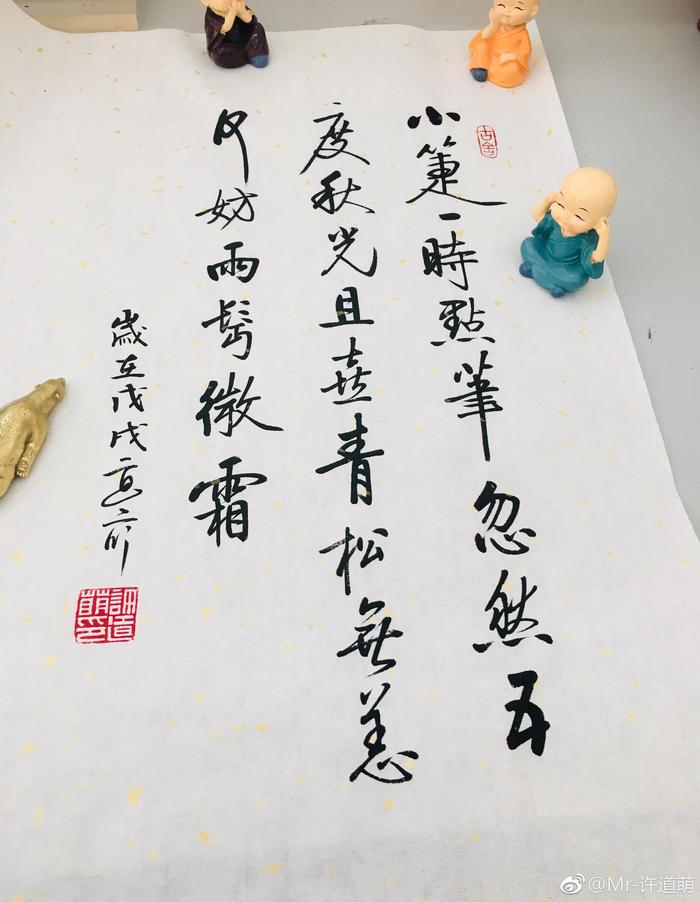 古舍
小箑一時點筆忽然五
度秋光且喜青松無恙
何妨兩鬢微霜
歲在戊戌
許道萌印
@Mr-许道萌